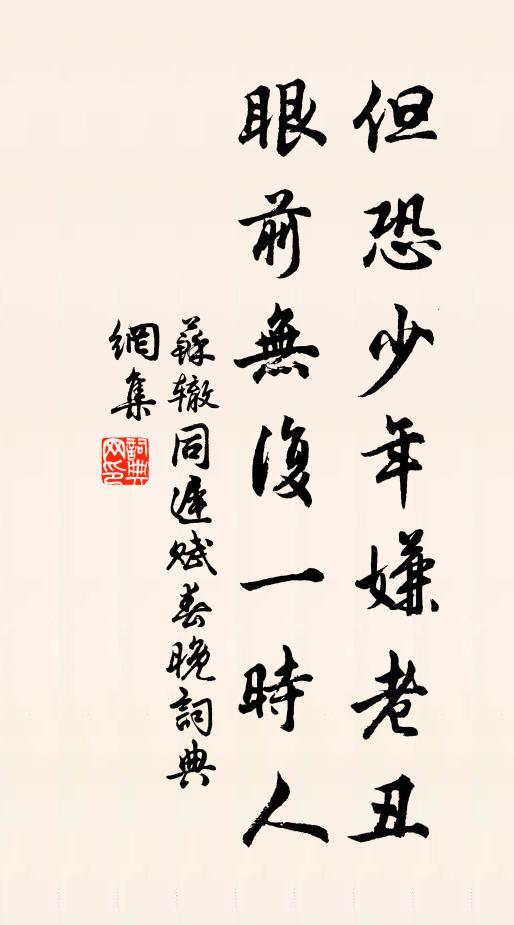 但恐少年嫌老丑
眼前無復一時人
蘇辙同遲赋春晚詞典
網集
詞典网印